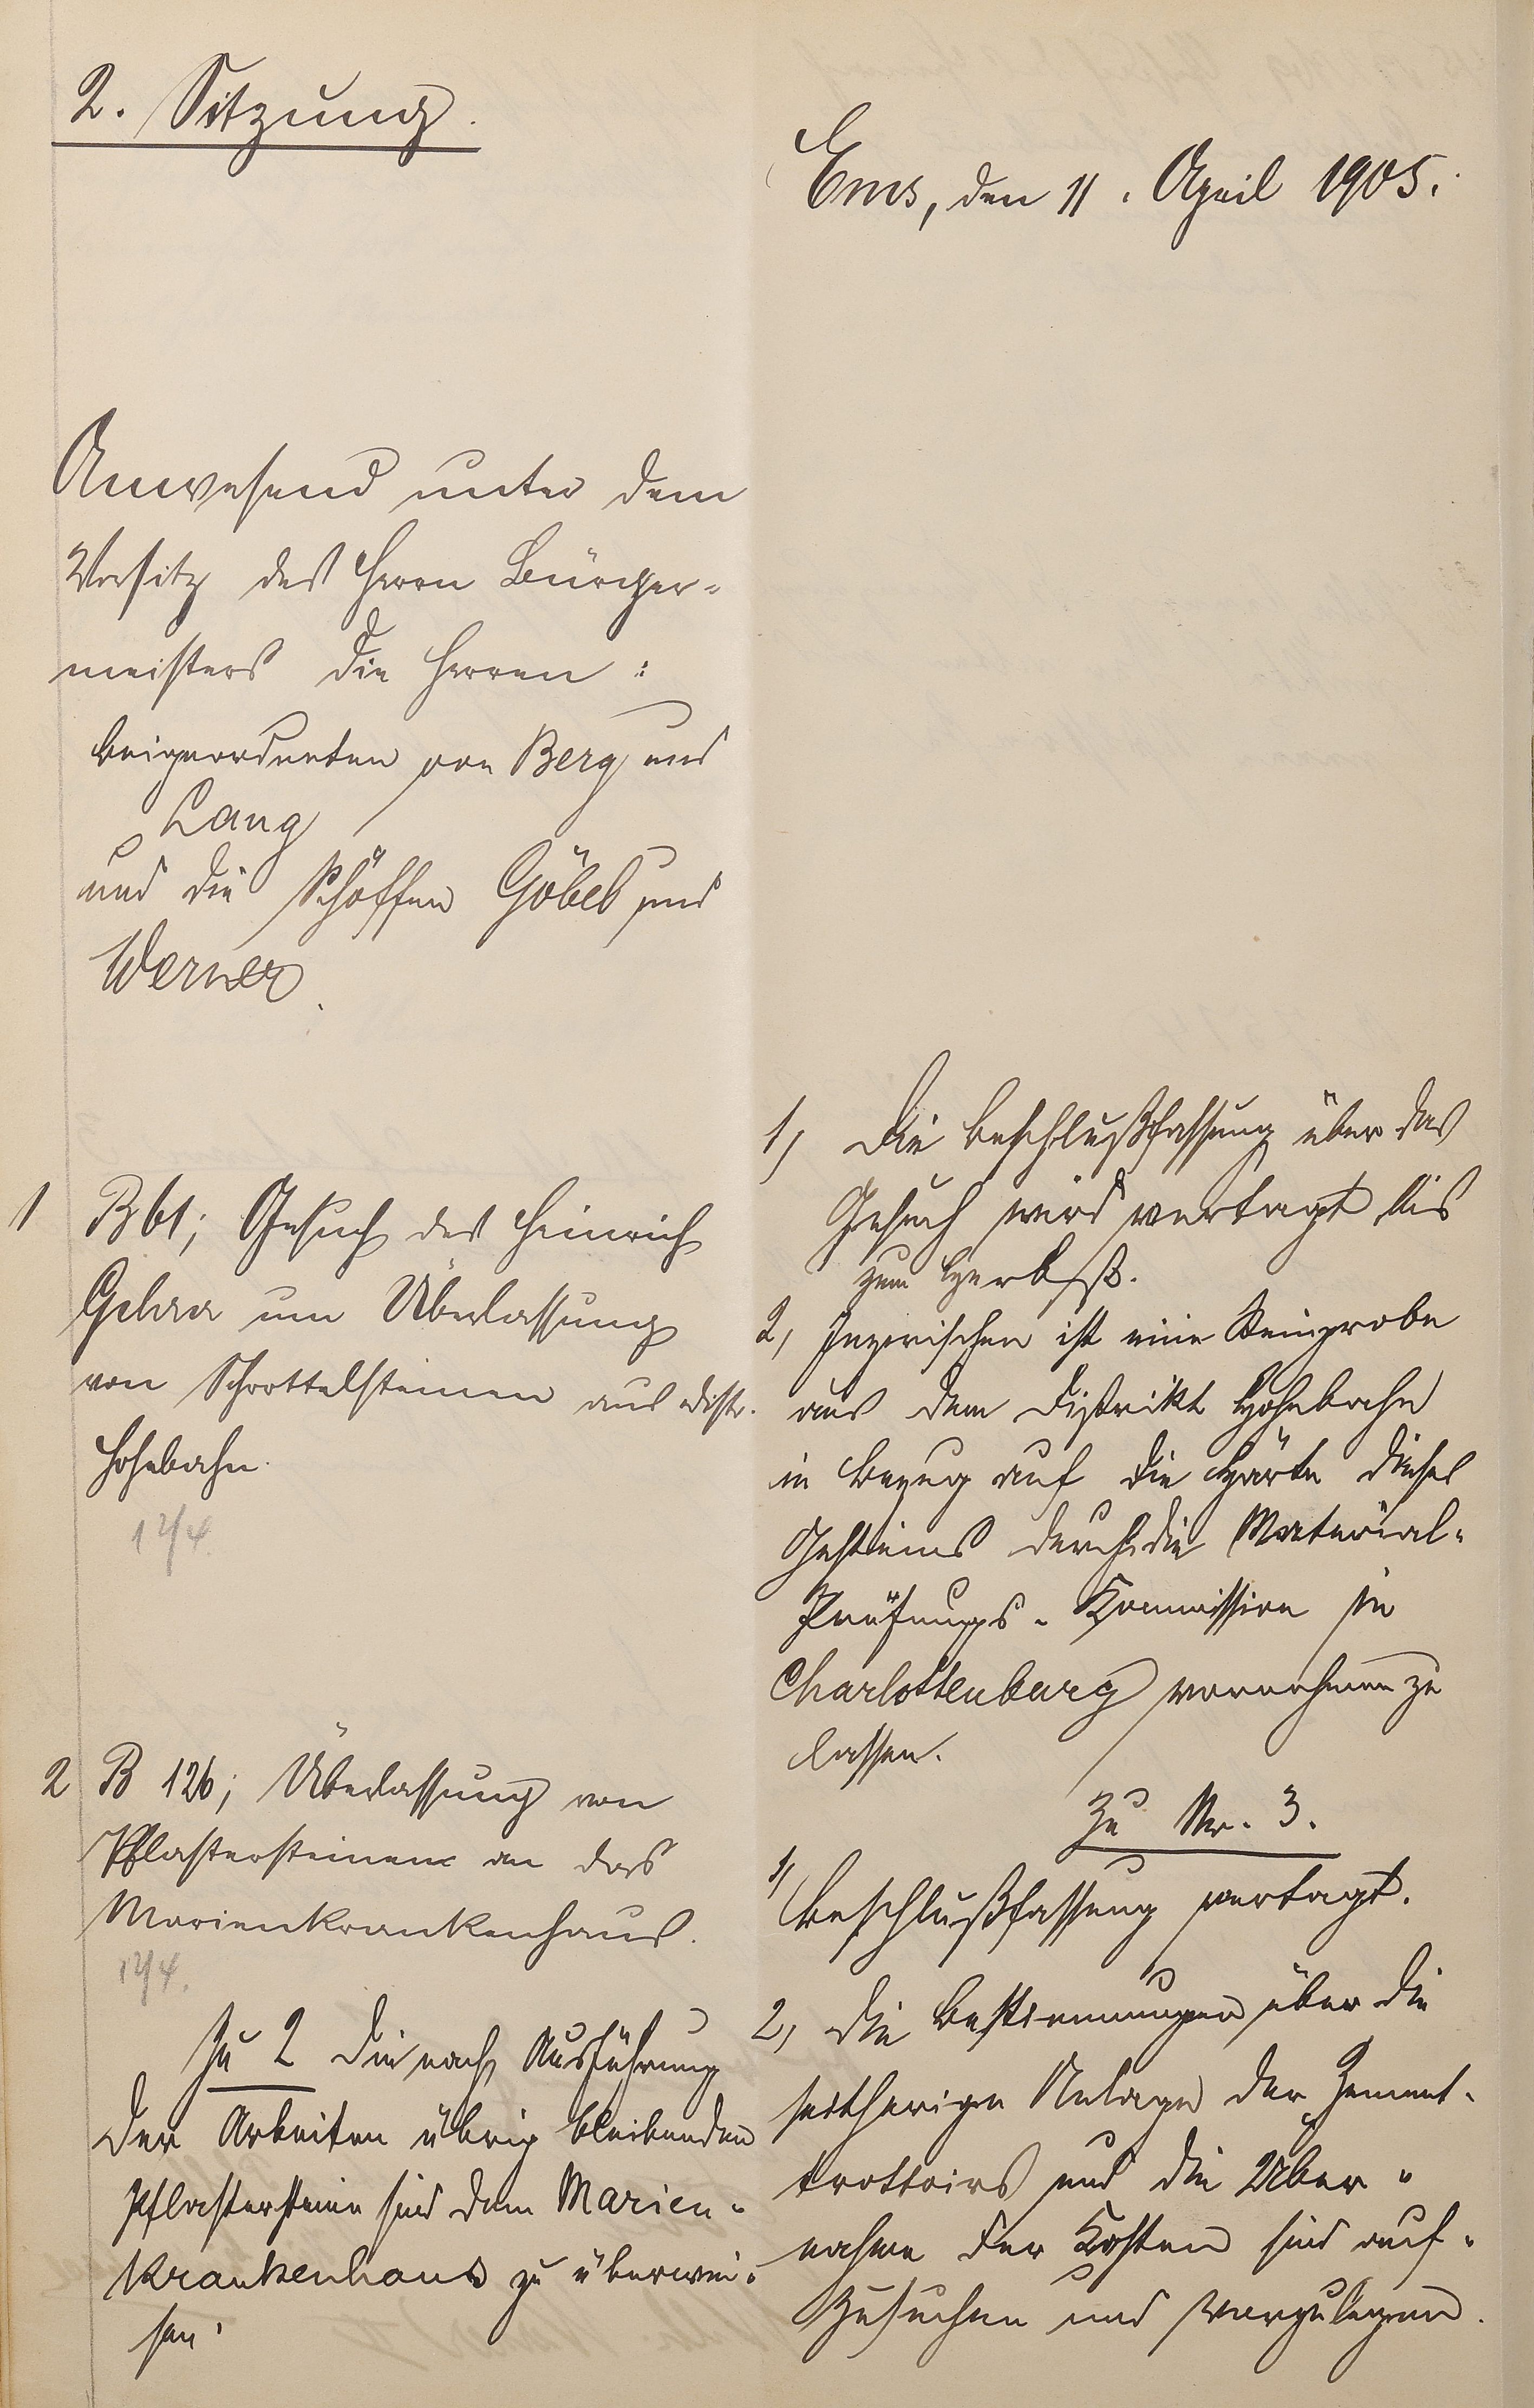 2. Sitzung.
Ems, den 11. April 1905.
Anwesend unter dem
Vorsitz des Herrn Bürger-
meisters die Herren:
Beigeordneten von Berg und
Lang
und die Schöffen Göbel und
Werner.
1 B 61; Gesuch des Heinrich
um Überlassung
von Schrottelsteinen aus Distr.
Hohebahn.
12/4.
2 B 126; Überlassung von
Pflastersteinen an das
Marienkrankenhaus.
12/4.
Zu 2 Die nach Ausführung
der Arbeiten übrig bleibenden
Pflastersteine sind dem Marien-
krankenhaus zu überwei-
sen.
1, Die Beschlußfassung über das
Gesuch wird vertagt bis
zum Herbst.
2, Inzwischen ist eine Steinprobe
aus dem Distrikt Hohebahn
in Bezug auf die Härte dieses
Gesteins durch die Material-
Prüfungs-Kommission in
Charlottenburg vornehmen zu
lassen.
Zu Nr. 3.
1, Beschlußfassung vertagt.
2, Die Bestimmungen über die
seitherige Anlage der Zement-
trottoirs und die Über-
nahme der Kosten sind auf-
zusuchen und vorzulegen.